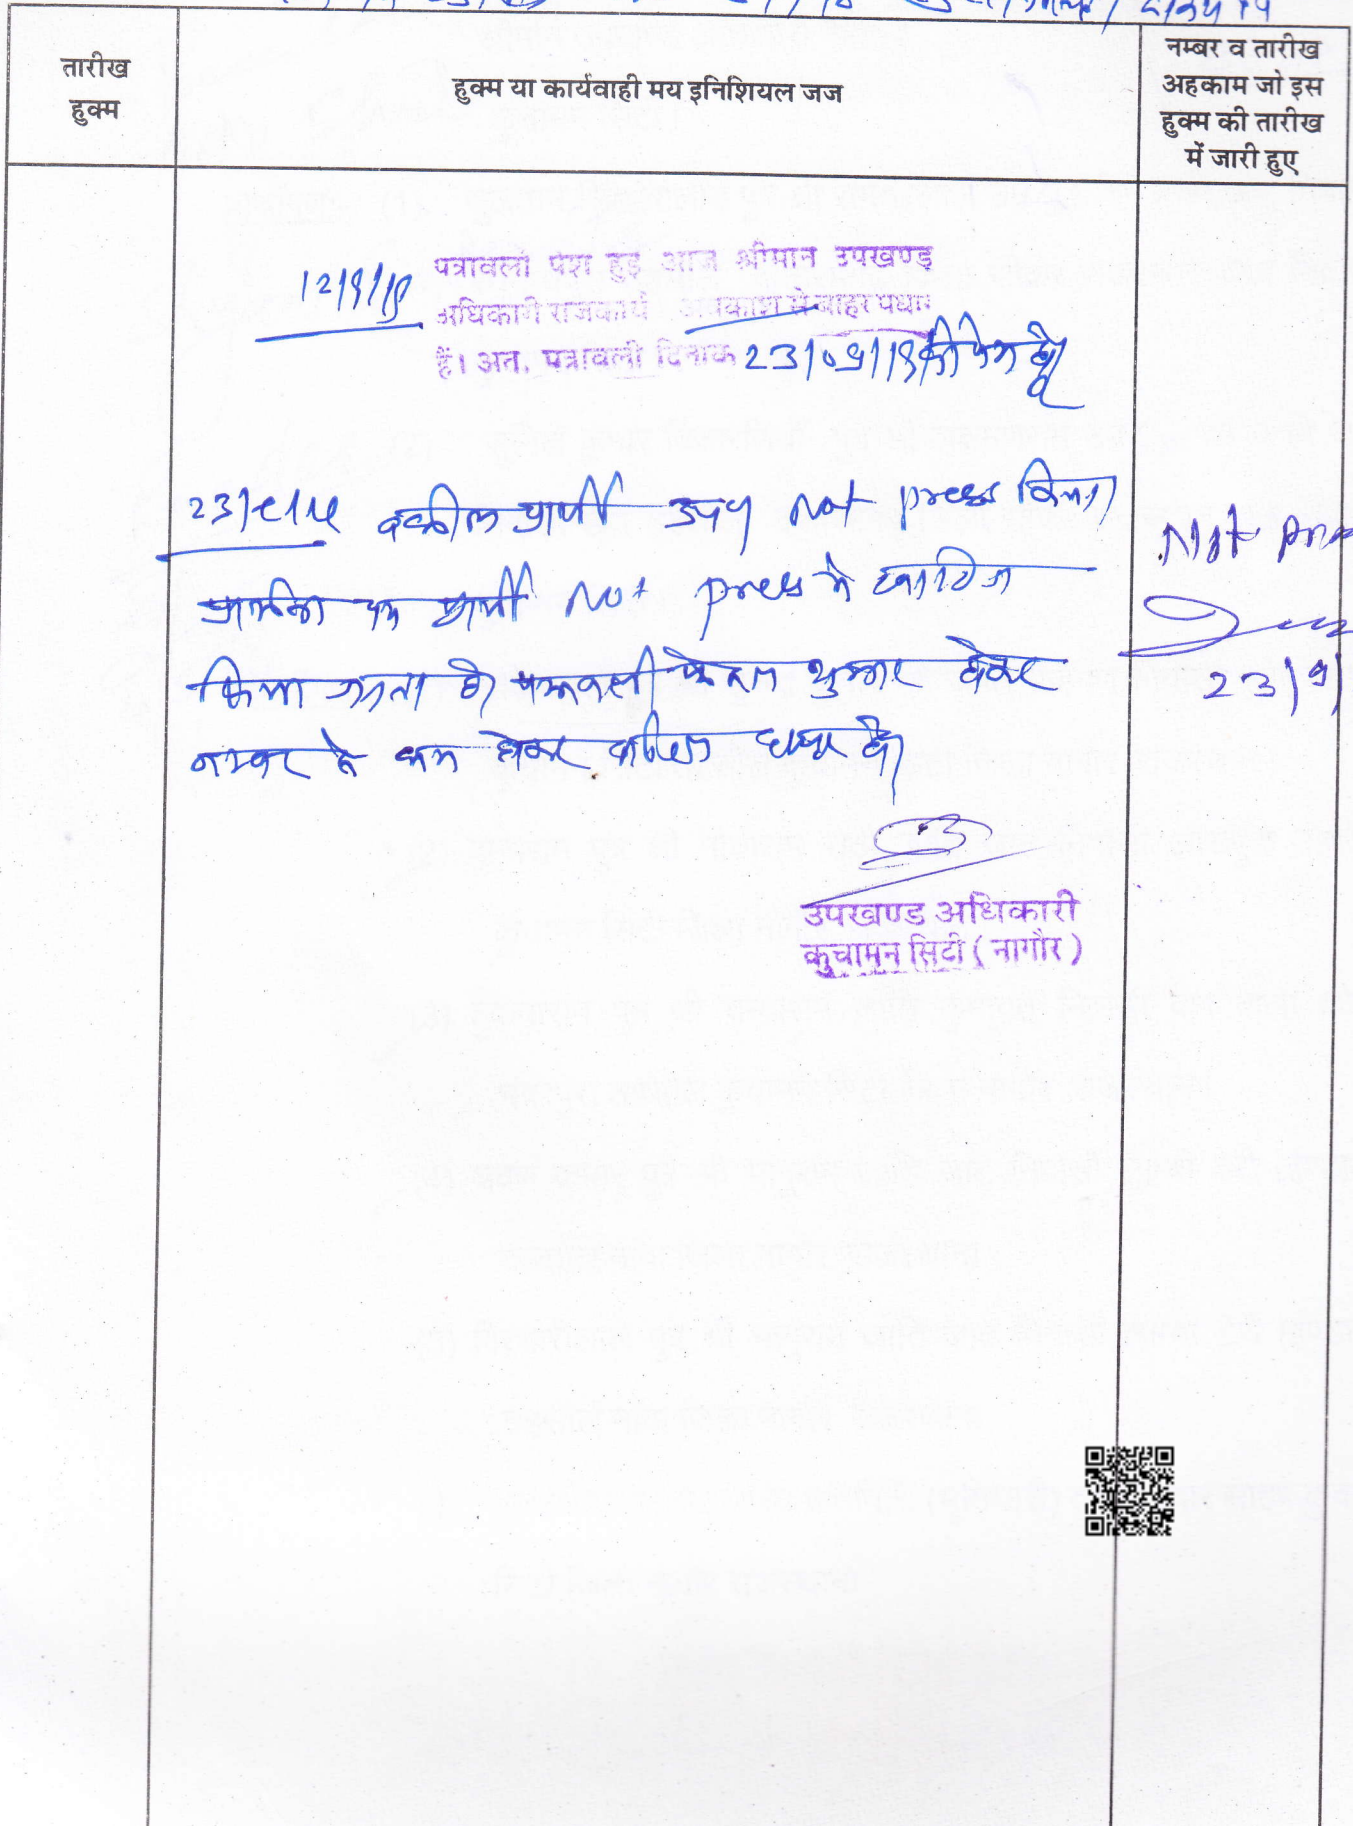 तारीख
हुक्म
हुक्म या कार्यवाही मय इनिशियल जज
नम्बर व तारीख
अहकाम जो इस
हुक्म की तारीख
में जारी हुए
12/9/19 पत्रावली पेश हुई आज श्रीमान उपखण्ड
अधिकारी राजकार्य अवकाश से बाहर पधारे
हैं। अतः पत्रावली दिनांक 23/09/19 को पेश हो
23/9/19 वकील प्रार्थी उप० Not press किया
प्रार्थना पत्र प्रार्थी Not press में खारिज
किया जाता है। पत्रावली फैसल शुमार होकर
नम्बर से कम होकर दाखिल दफ्तर हो।
Not
23/9/
उपखण्ड अधिकारी
कुचामन सिटी (नागौर)